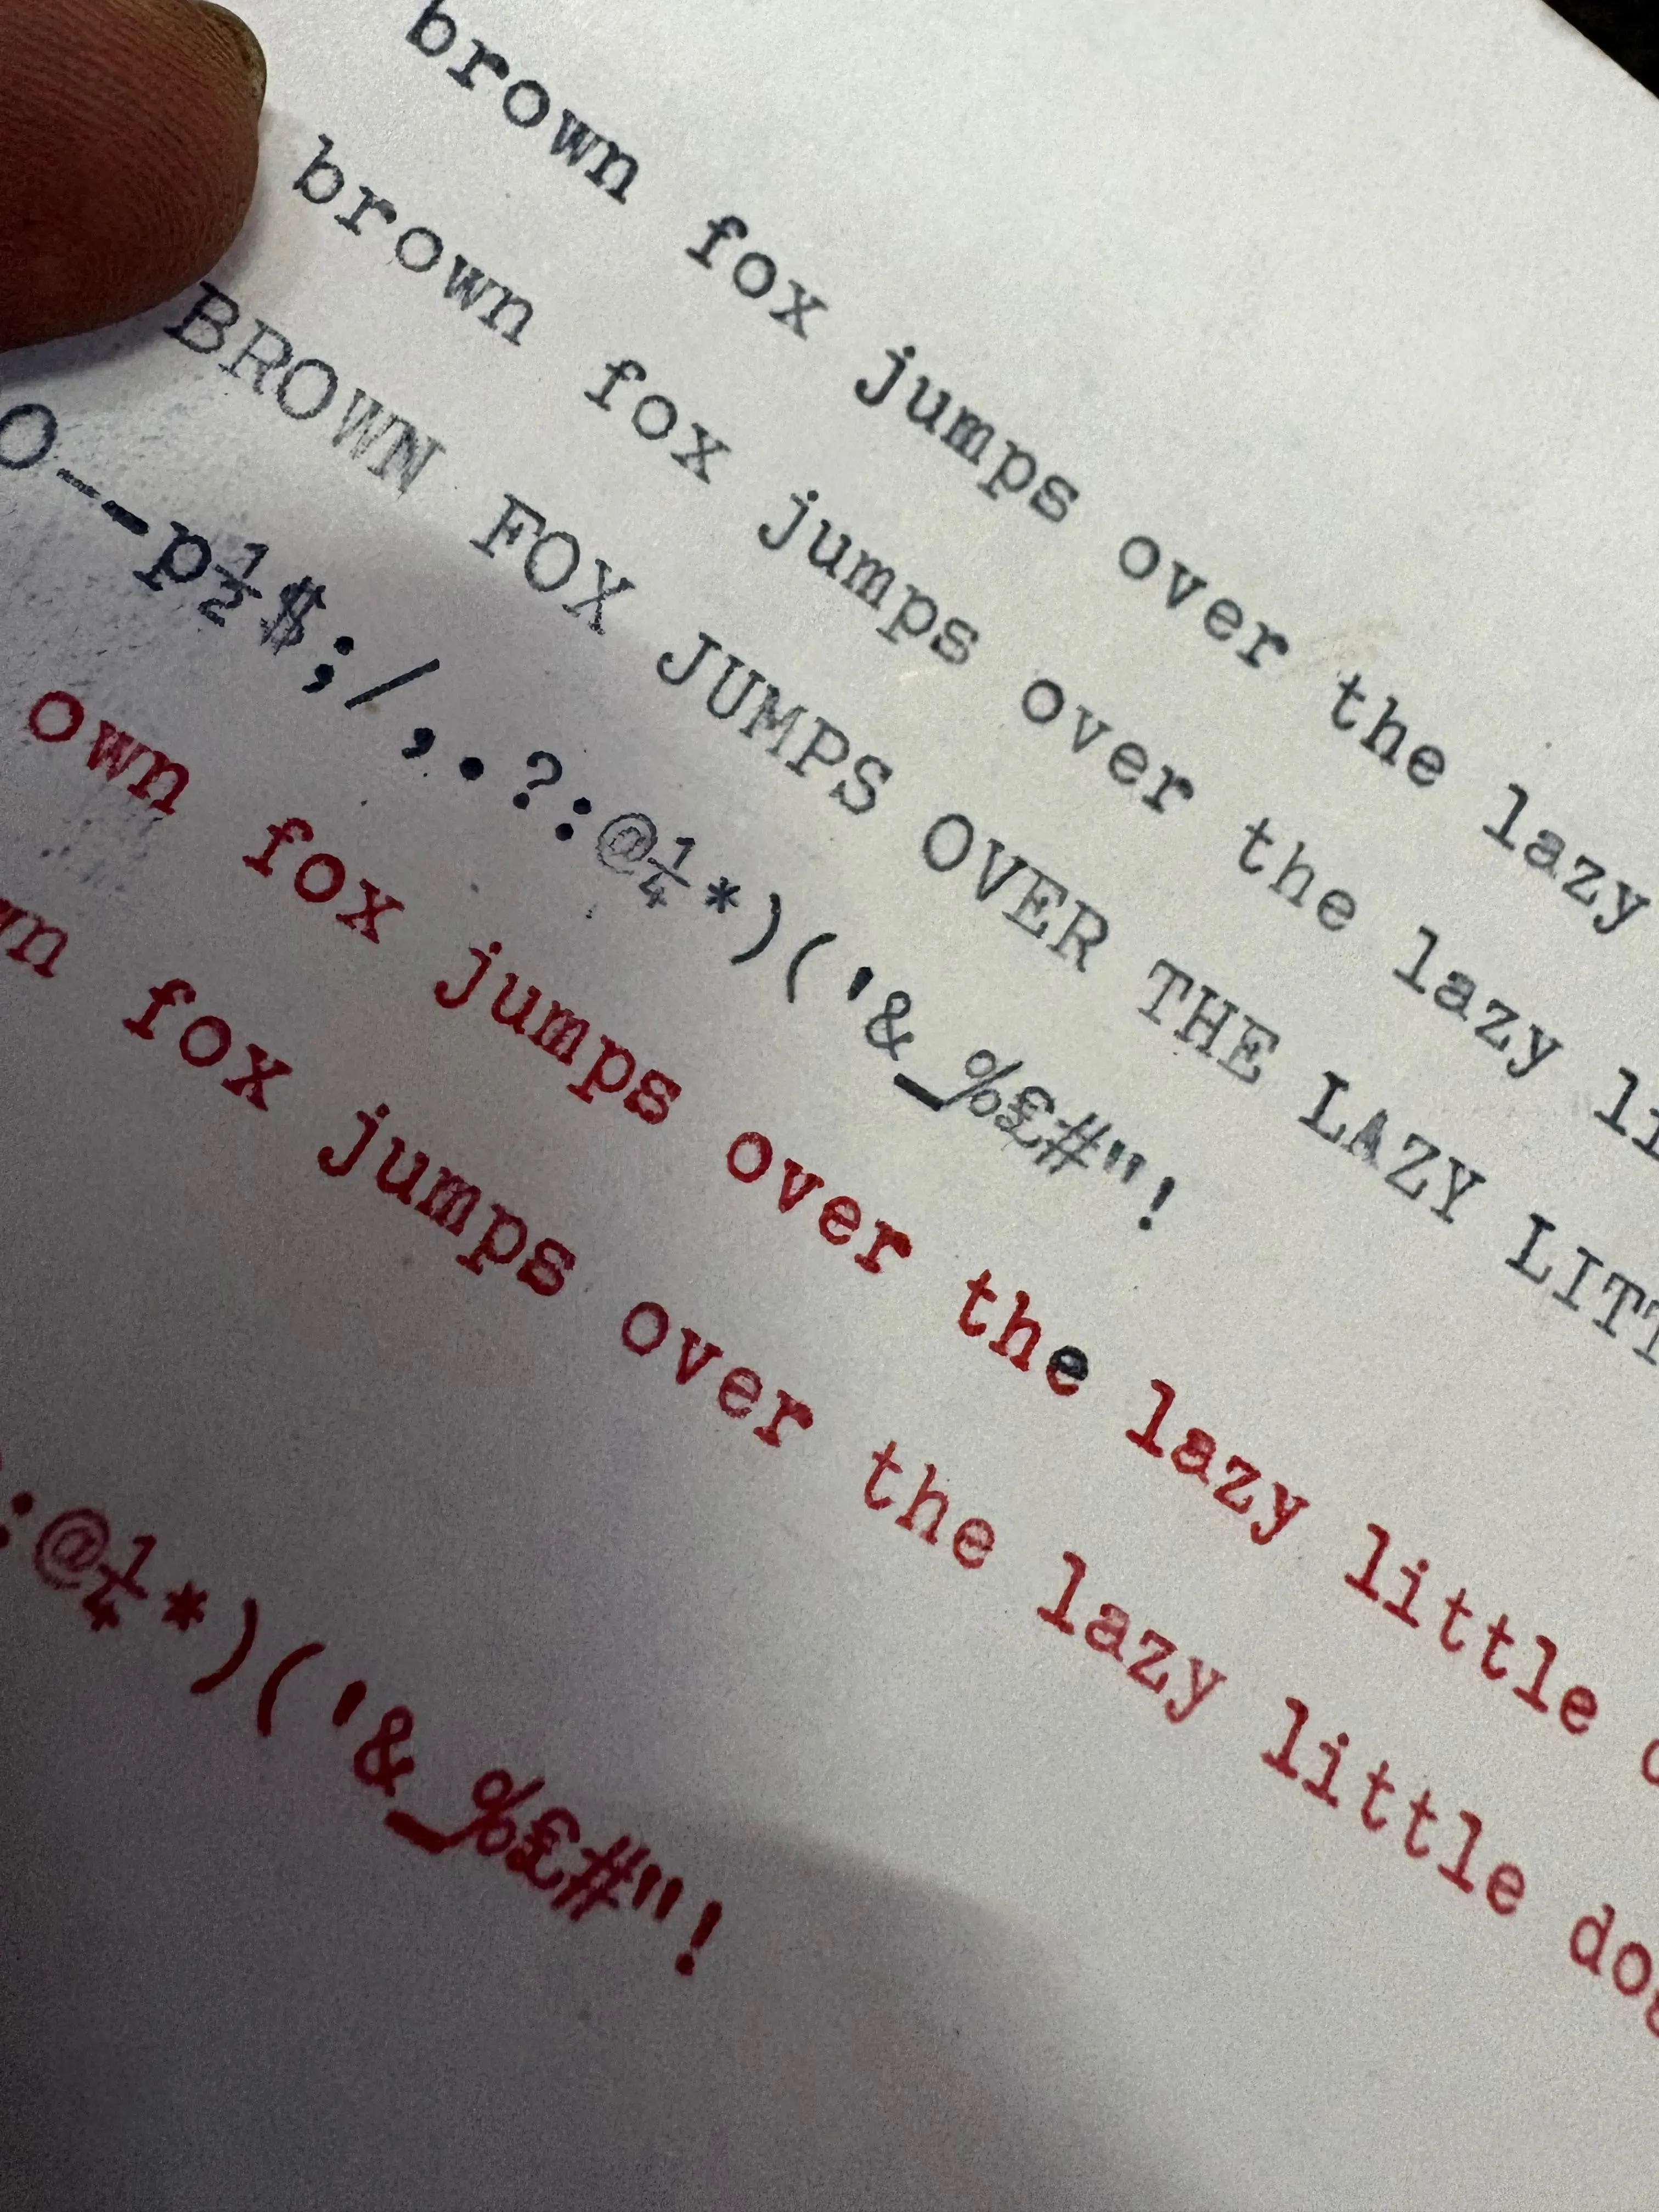 brown fox jumps over the lazy
brown fox jumps over the lazy
BROWN FOX JUMPS OVER THE LAZY
O--p½$;/,.?:@¼*)('&_%£#"!
own fox jumps over the lazy little
fox jumps over the lazy little
:@¼*)('&_%£#"!